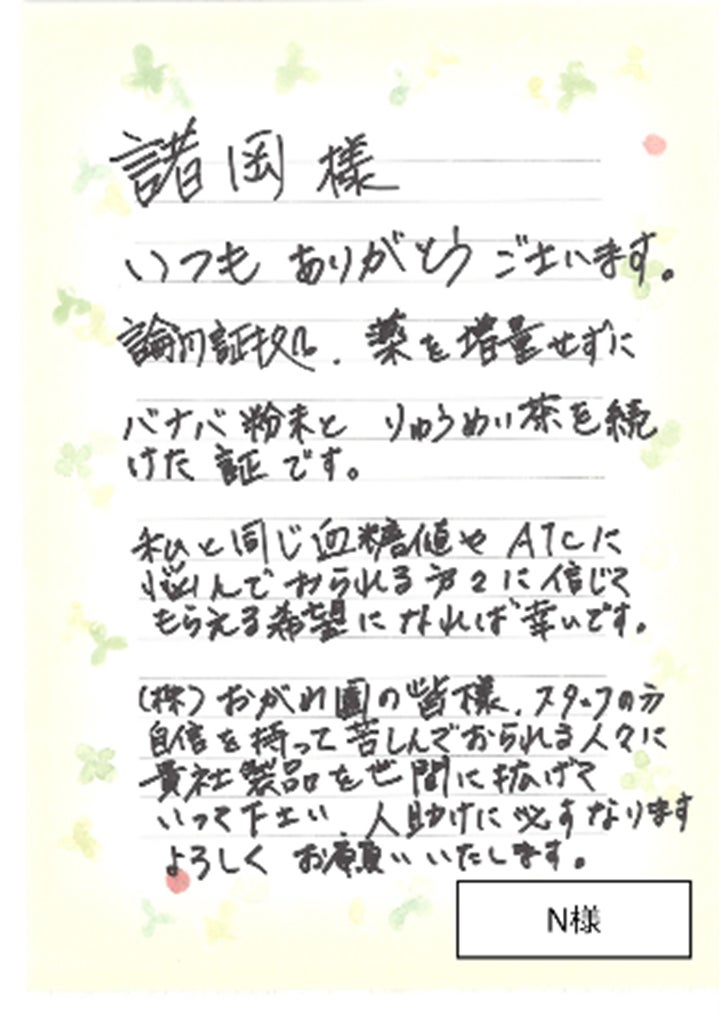 諸岡様
いつも ありがとうございます。
論川証拠、薬を増量せずに
バナバ粉末と りゅうめい茶を続
けた 証です。
私と同じ血糖値や A1cに
悩んでおられる方々に信じて
もらえる希望になれば幸いです。
(株)おがわ園の皆様、スタッフの方
自信を持って苦しんでおられる人々に
貴社製品を世間に拡げて
いって下さい、人助けに必ずなります
よろしく お願いいたします。
N様